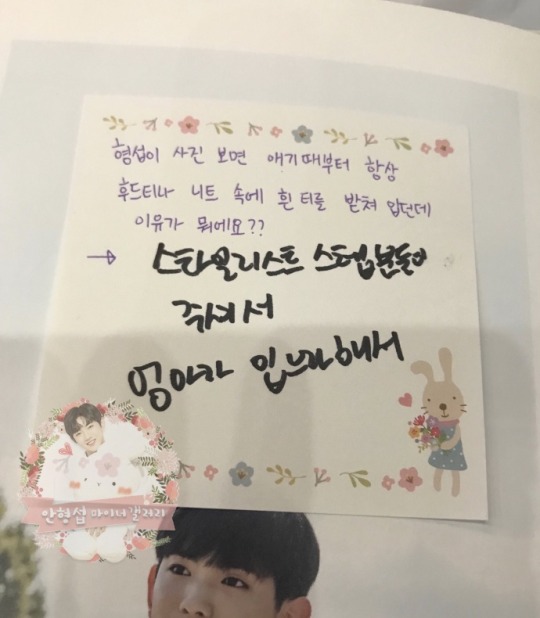 형섭이 사진 보면 애기때부터 항상
후드티나 니트 속에 흰 티를 받쳐 입던데
이유가 뭐에요??
→ 스타일리스트 스텝분들이
주셔서
엄마가 입으라해서
안형섭 마이너 갤러리